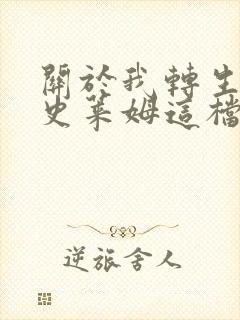 關於我轉生
史萊姆這檔
逆旅舍人